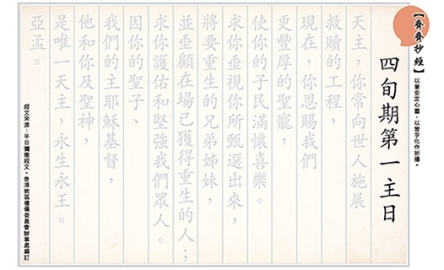 【齊齊抄經】
以筆安定心靈，以習字化作祈禱。
四旬期第一主日
天主，你常向世人施展
救贖的工程，
現在，你恩賜我們
更豐厚的聖寵，
使你的子民滿懷喜樂。
求你垂視你所甄選出來，
將要重生的兄弟姊妹，
並垂顧在場已獲得重生的人；
求你護佑和堅強我們眾人。
因你的聖子、
我們的主耶穌基督，
他和你及聖神，
是唯一天主，永生永王。
亞孟。
經文來源：平日彌撒經文，香港教區禮儀委員會辦事處編訂